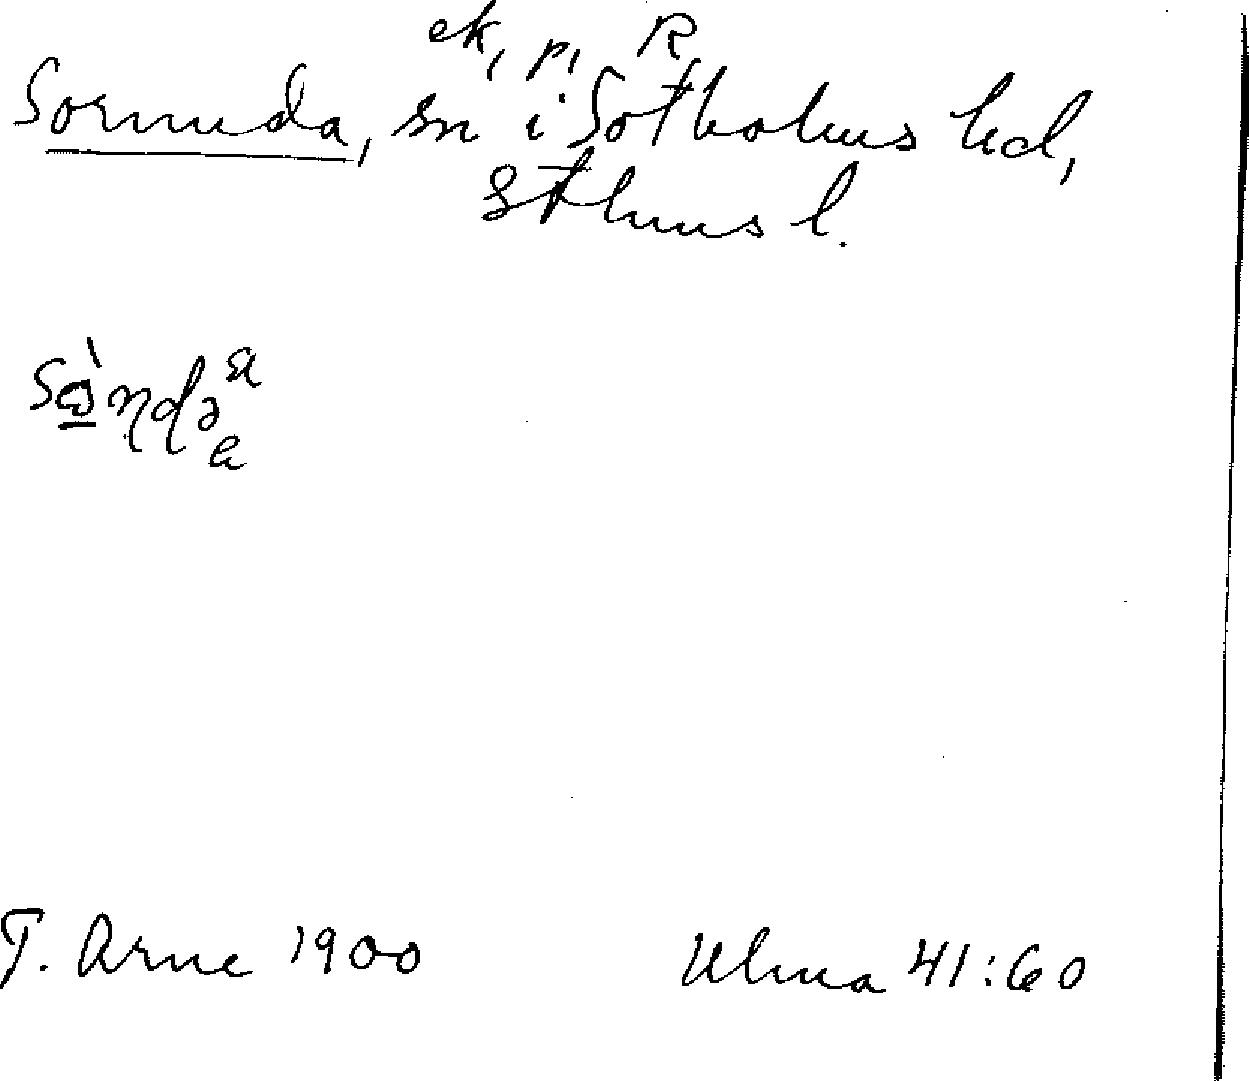 ek, p, R
Sorunda, sn i Sotholms hd,
Sthlms l.
T. Arne 1900 Ulma 41:60